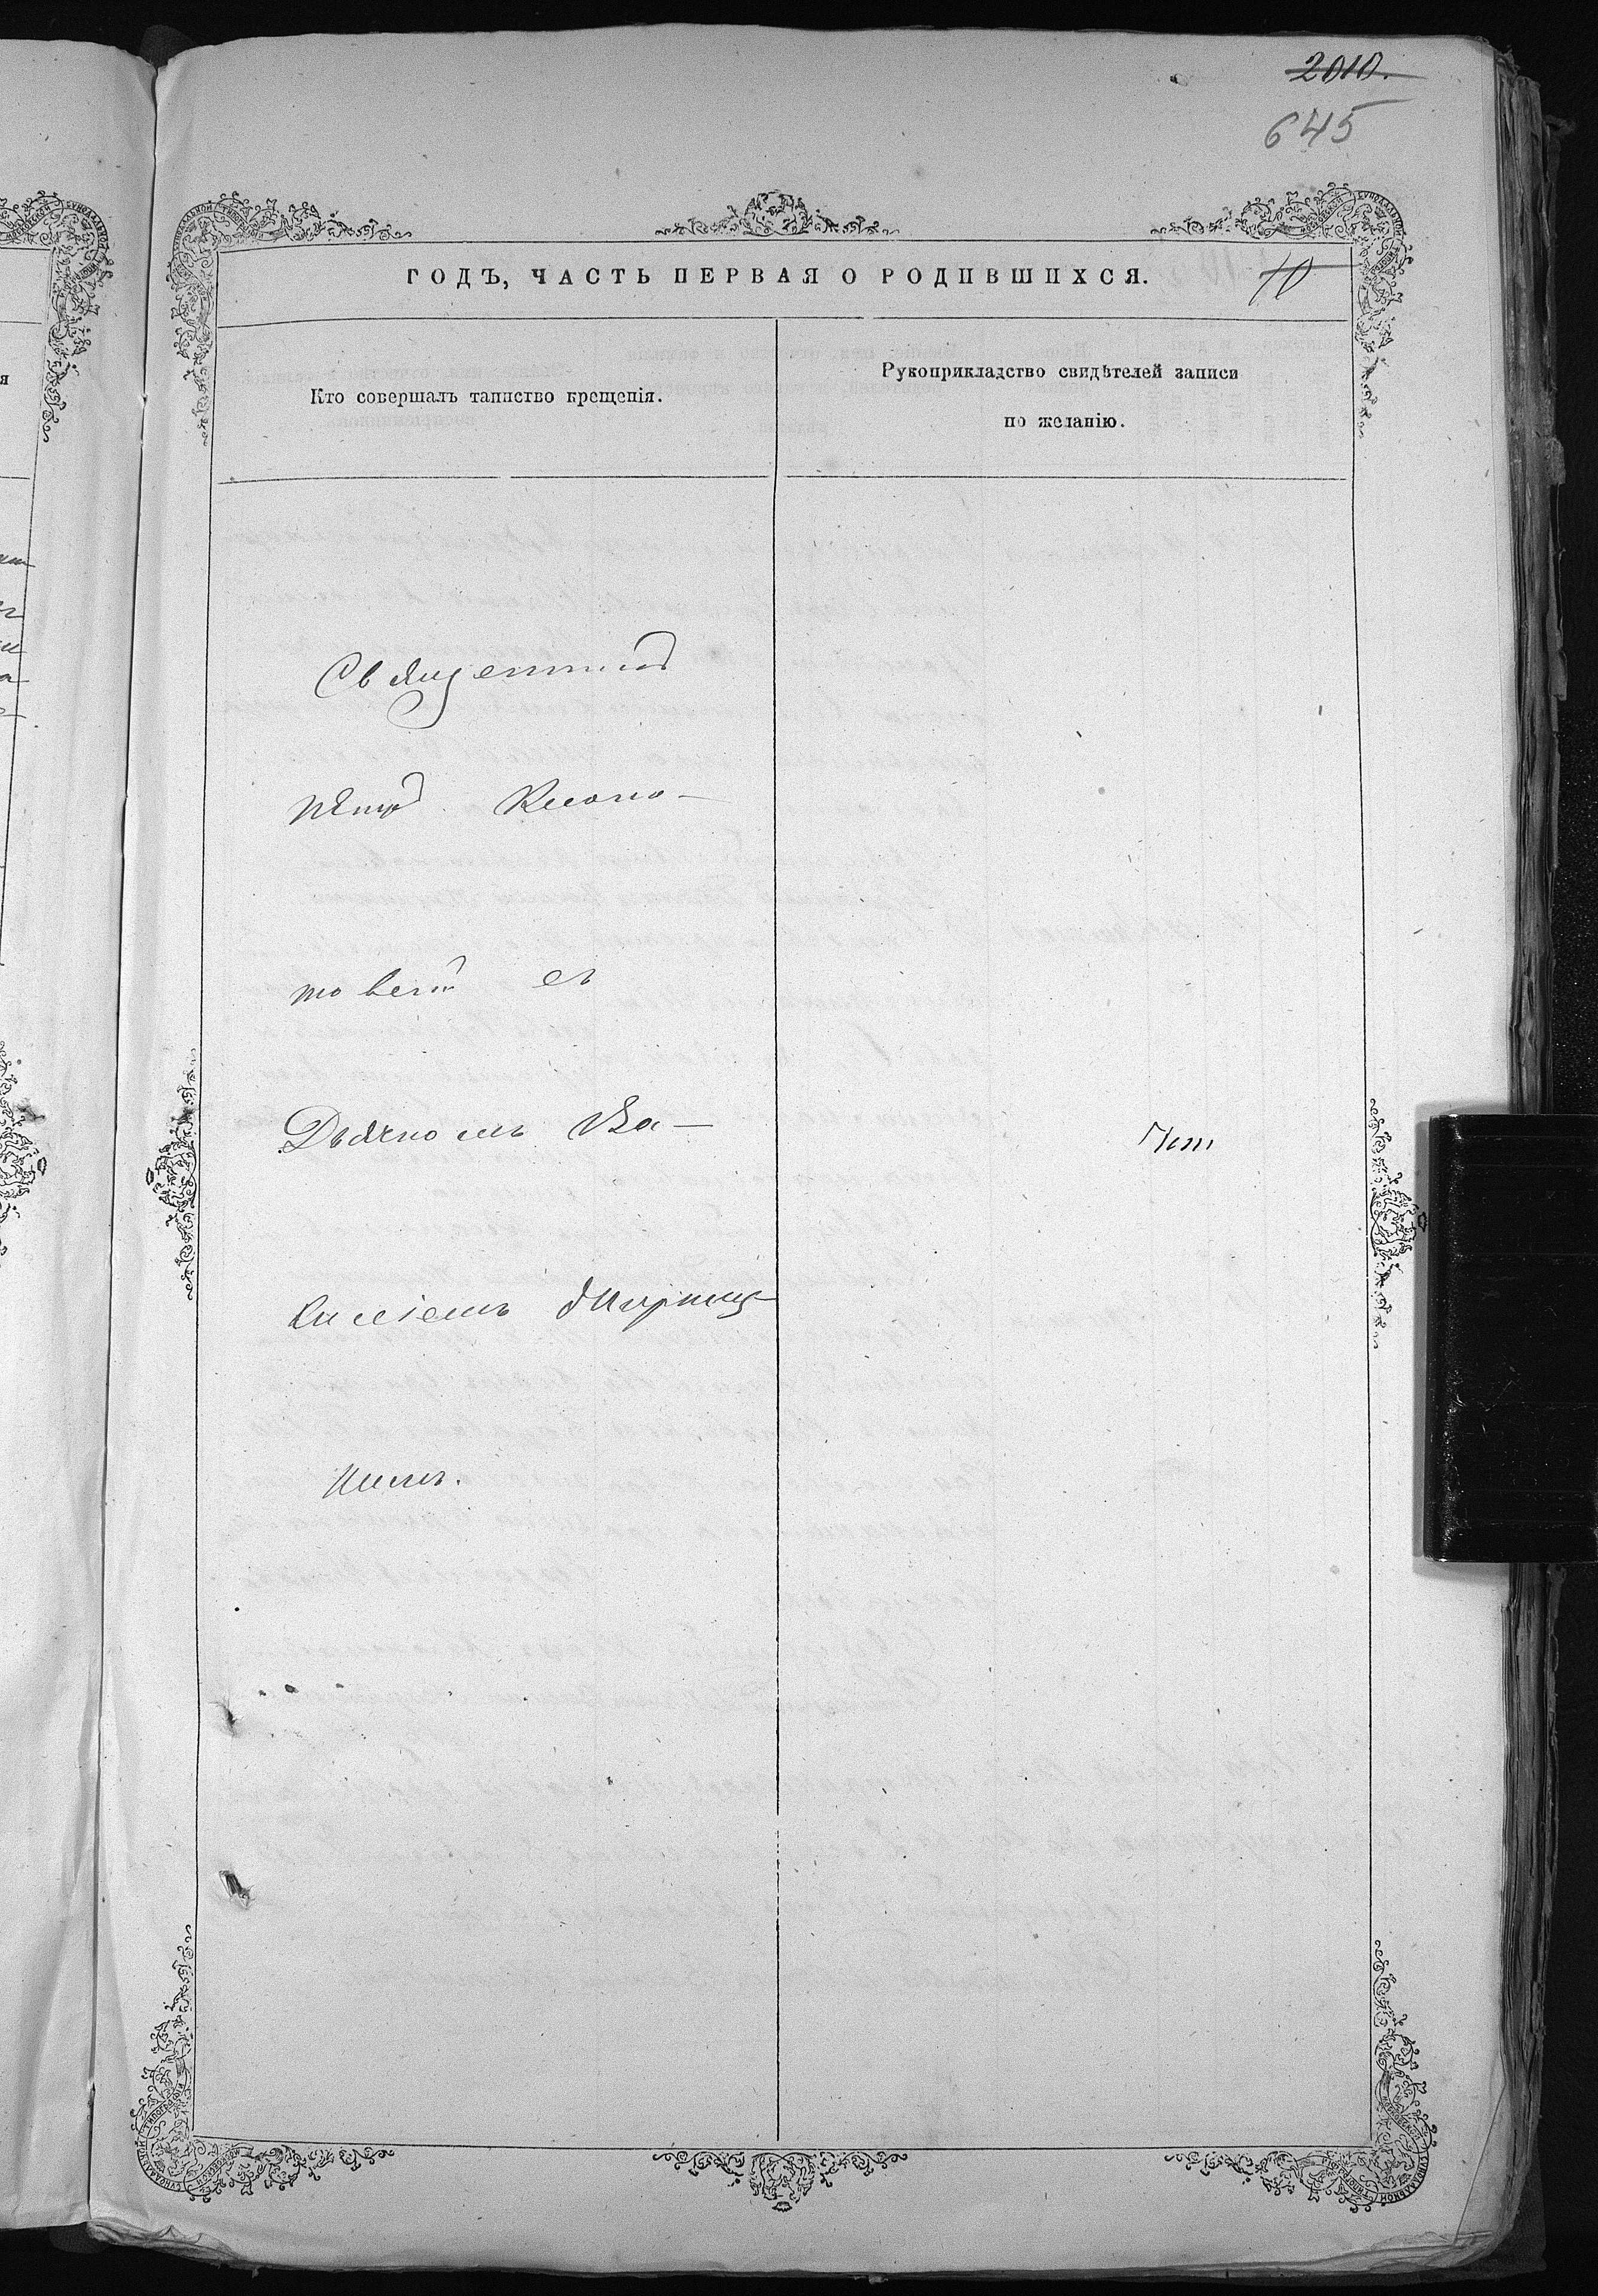 2010.
645
ГОДЪ, ЧАСТЬ ПЕРВАЯ О РОДИВШИХСЯ.
10
Кто совершалъ таинство крещенія.
Рукоприкладство свидѣтелей записи
по желанію.
Священникъ
Петръ
товъ съ
Дьячкомъ Ва-
силіемъ
Нѣтъ